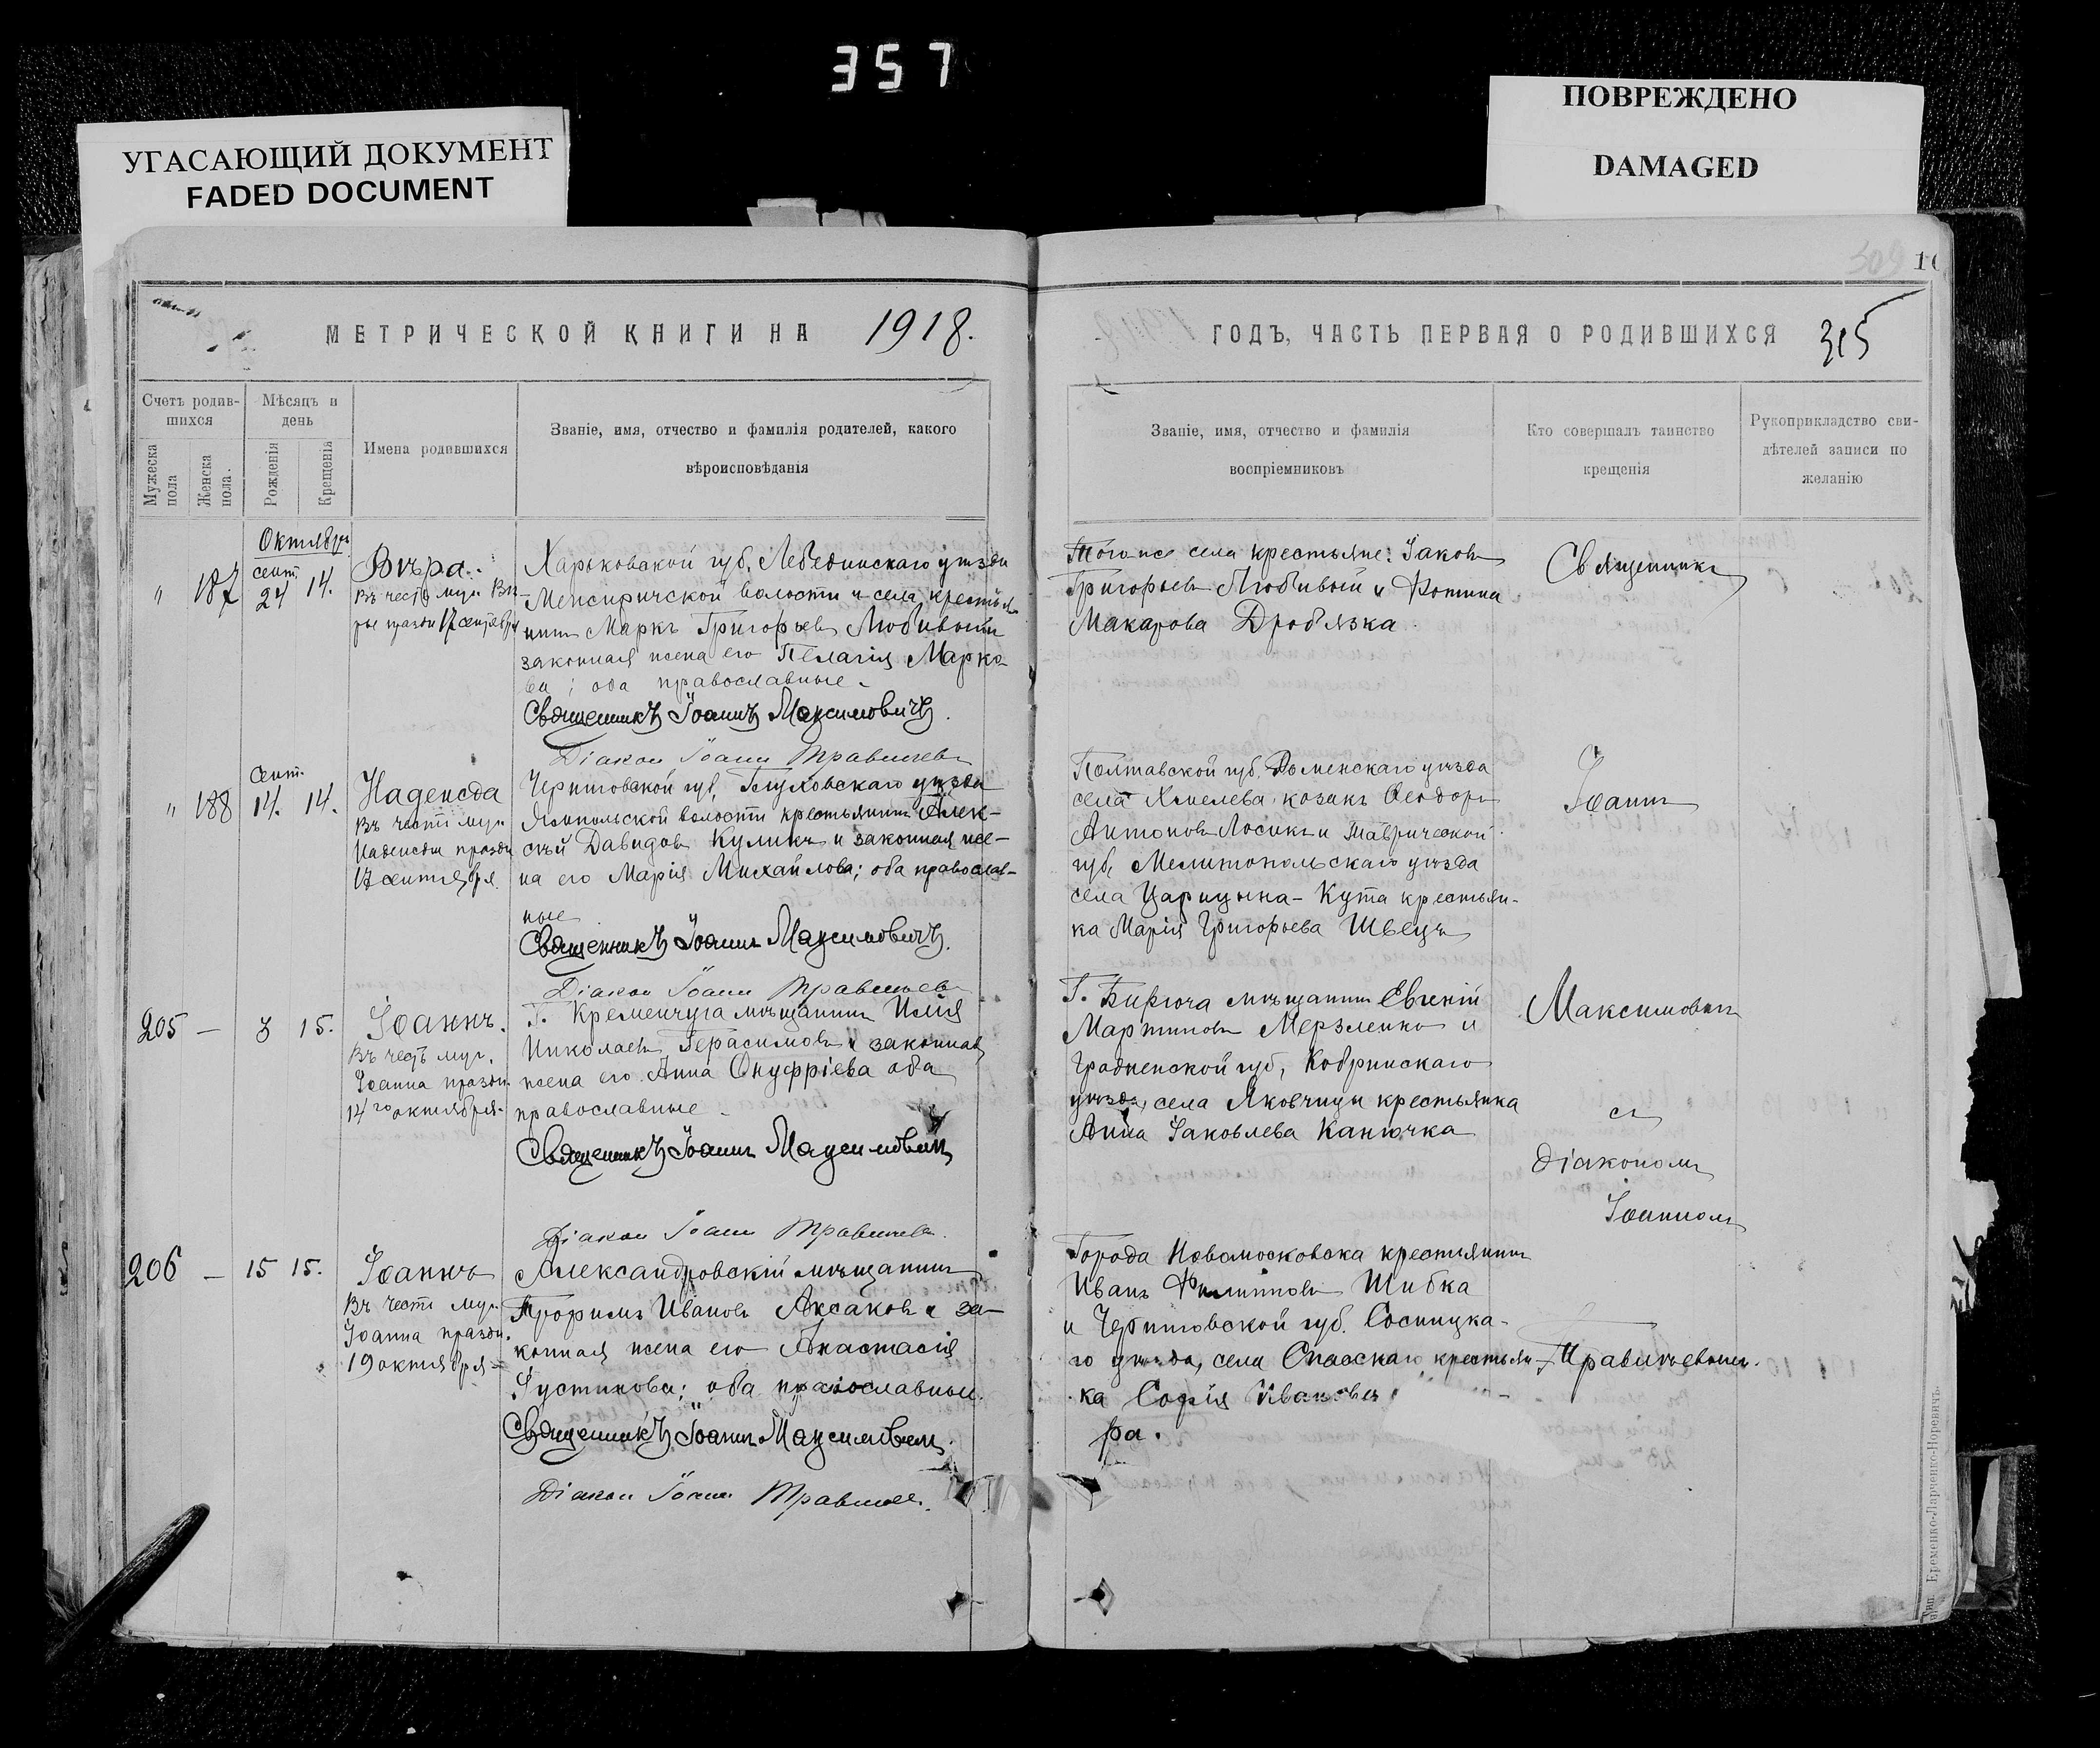 357
УГАСАЮЩИЙ ДОКУМЕНТ
FADED DOCUMENT
ПОВРЕЖДЕНО
DAMAGED
МЕТРИЧЕСКОЙ КНИГИ НА 1918.
Счетъ родив-
шихся
Мѣсяцъ и
день
Мужеска
пола
Женска
пола.
Рожденія
Крещенія
Имена родившихся
Званіе, имя, отчество и фамилія родителей, какого
вѣроисповѣданія
Октябрь
" 187
сент.
24 14.
Вѣра.
Въ честь муч. Вѣ-
ры праздн 17 сентября
Харьковской губ, Лебединскаго уѣзда
Межиричской волости и села, крестья-
нинъ Маркъ Григорьевъ Любивый и
законная жена его Пелагія Марко-
ва; оба православные.
Священникъ Іоаннъ Максимовичъ.
Діаконъ Іоаннъ Травинчевъ
" 188
сент.
14. 14.
Надежда
Въ честь муч.
Надежды праздн
17 сентября.
Черниговской губ, Глуховскаго уѣзда
Ямпольской волости крестьянинъ Алек-
сѣй Давидовъ Куликъ и законная же-
на его Марія Михайлова; оба православ-
ные
Священникъ Іоаннъ Максимовичъ.
Діаконъ Іоаннъ Травинчевъ
205 — 3 15.
Іоаннъ.
Въ честь муч.
Іоанна праздн.
14го октября.
Г. Кременчуга мѣщанинъ Илія
Николаевъ Герасимовъ и законная
жена его Анна Онуфріева оба
православные.
Священникъ Іоаннъ Максимовичъ
Діаконъ Іоаннъ Травинчевъ.
206 — 15 15.
Іоаннъ
Въ честь муч.
Іоанна праздн.
19 октября
Александровскій мѣщанинъ
Трофимъ Ивановъ Аксаковъ и за-
конная жена его Анастасія
Іустинова; оба православные.
Священникъ Іоаннъ Максимовичъ.
Діаконъ Іоаннъ
309
ГОДЪ, ЧАСТЬ ПЕРВАЯ О РОДИВШИХСЯ 315
Званіе, имя, отчество и фамилія
воспріемниковъ
Кто совершалъ таинство
крещенія
Рукоприкладство сви-
дѣтелей записи по
желанію
Того же села крестьяне: Іаковъ
Григорьевъ Любивый и Фотина
Макарова Дробязка.
Полтавской губ, Роменскаго уѣзда
села Хмелева козакъ Ѳеодоръ
Антоновъ Лосикъ и Таврической
губ, Мелитопольскаго уѣзда
села Царицына-Кута крестьян-
ка Марія Григорьева Швецъ
Г. Бирюча мѣщанинъ Евгеній
Мартиновъ Мерзленко и
Гродненской губ, Кобринскаго
уѣзда, села Яковчицы крестьянка
Анна Іаковлева Канючка
Города Новомосковска крестьянинъ
Иванъ Филипповъ Шибка
и Черниговской губ. Сосницка-
го уѣзда, села Спасскаго крестьян-
ка Софія Иванова
ра.
Священникъ
Іоаннъ
Максимовичъ
съ
діакономъ
Іоанномъ
Тип. Еременко-Ларченко-Норевичъ.